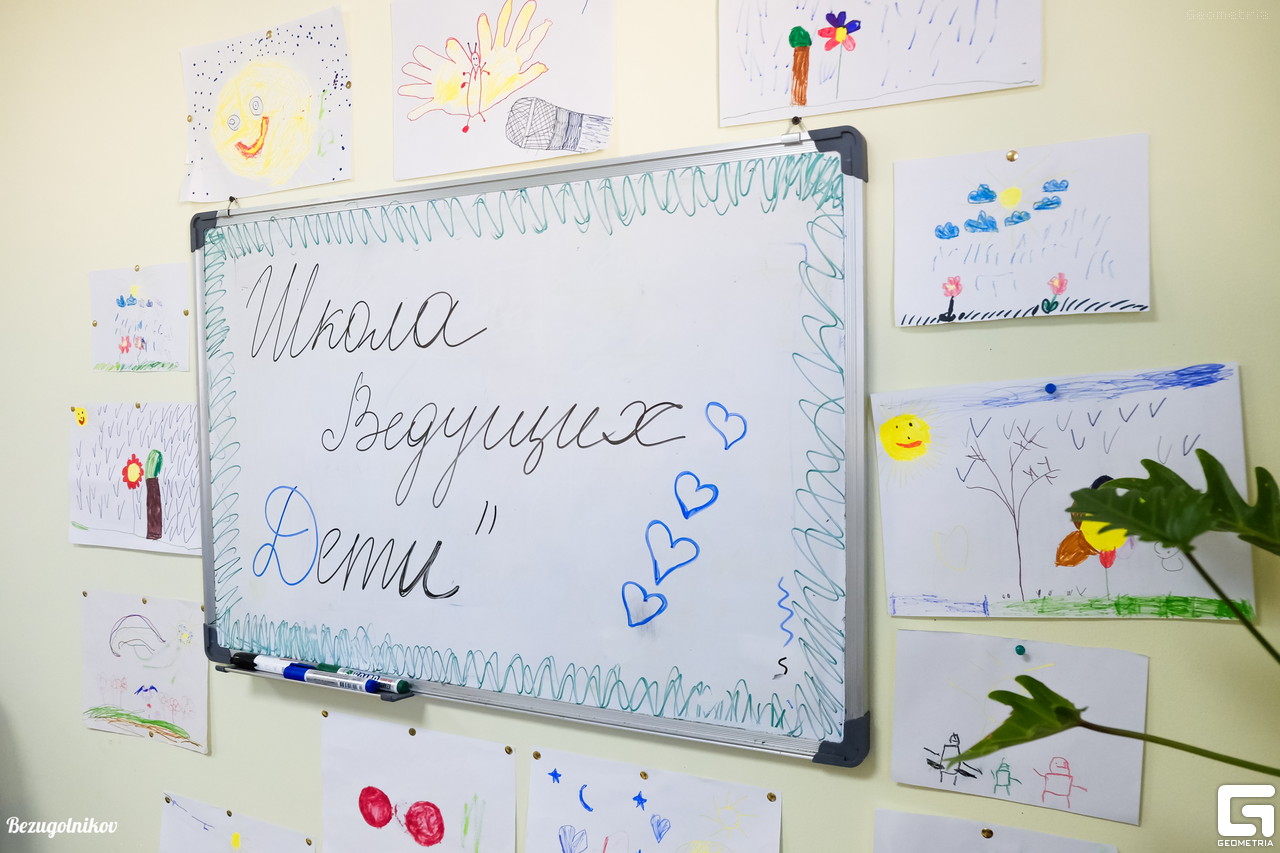 Geometria
Школа
Ведущих
Дети"
S
Bezugolnikov
GEOMETRIA